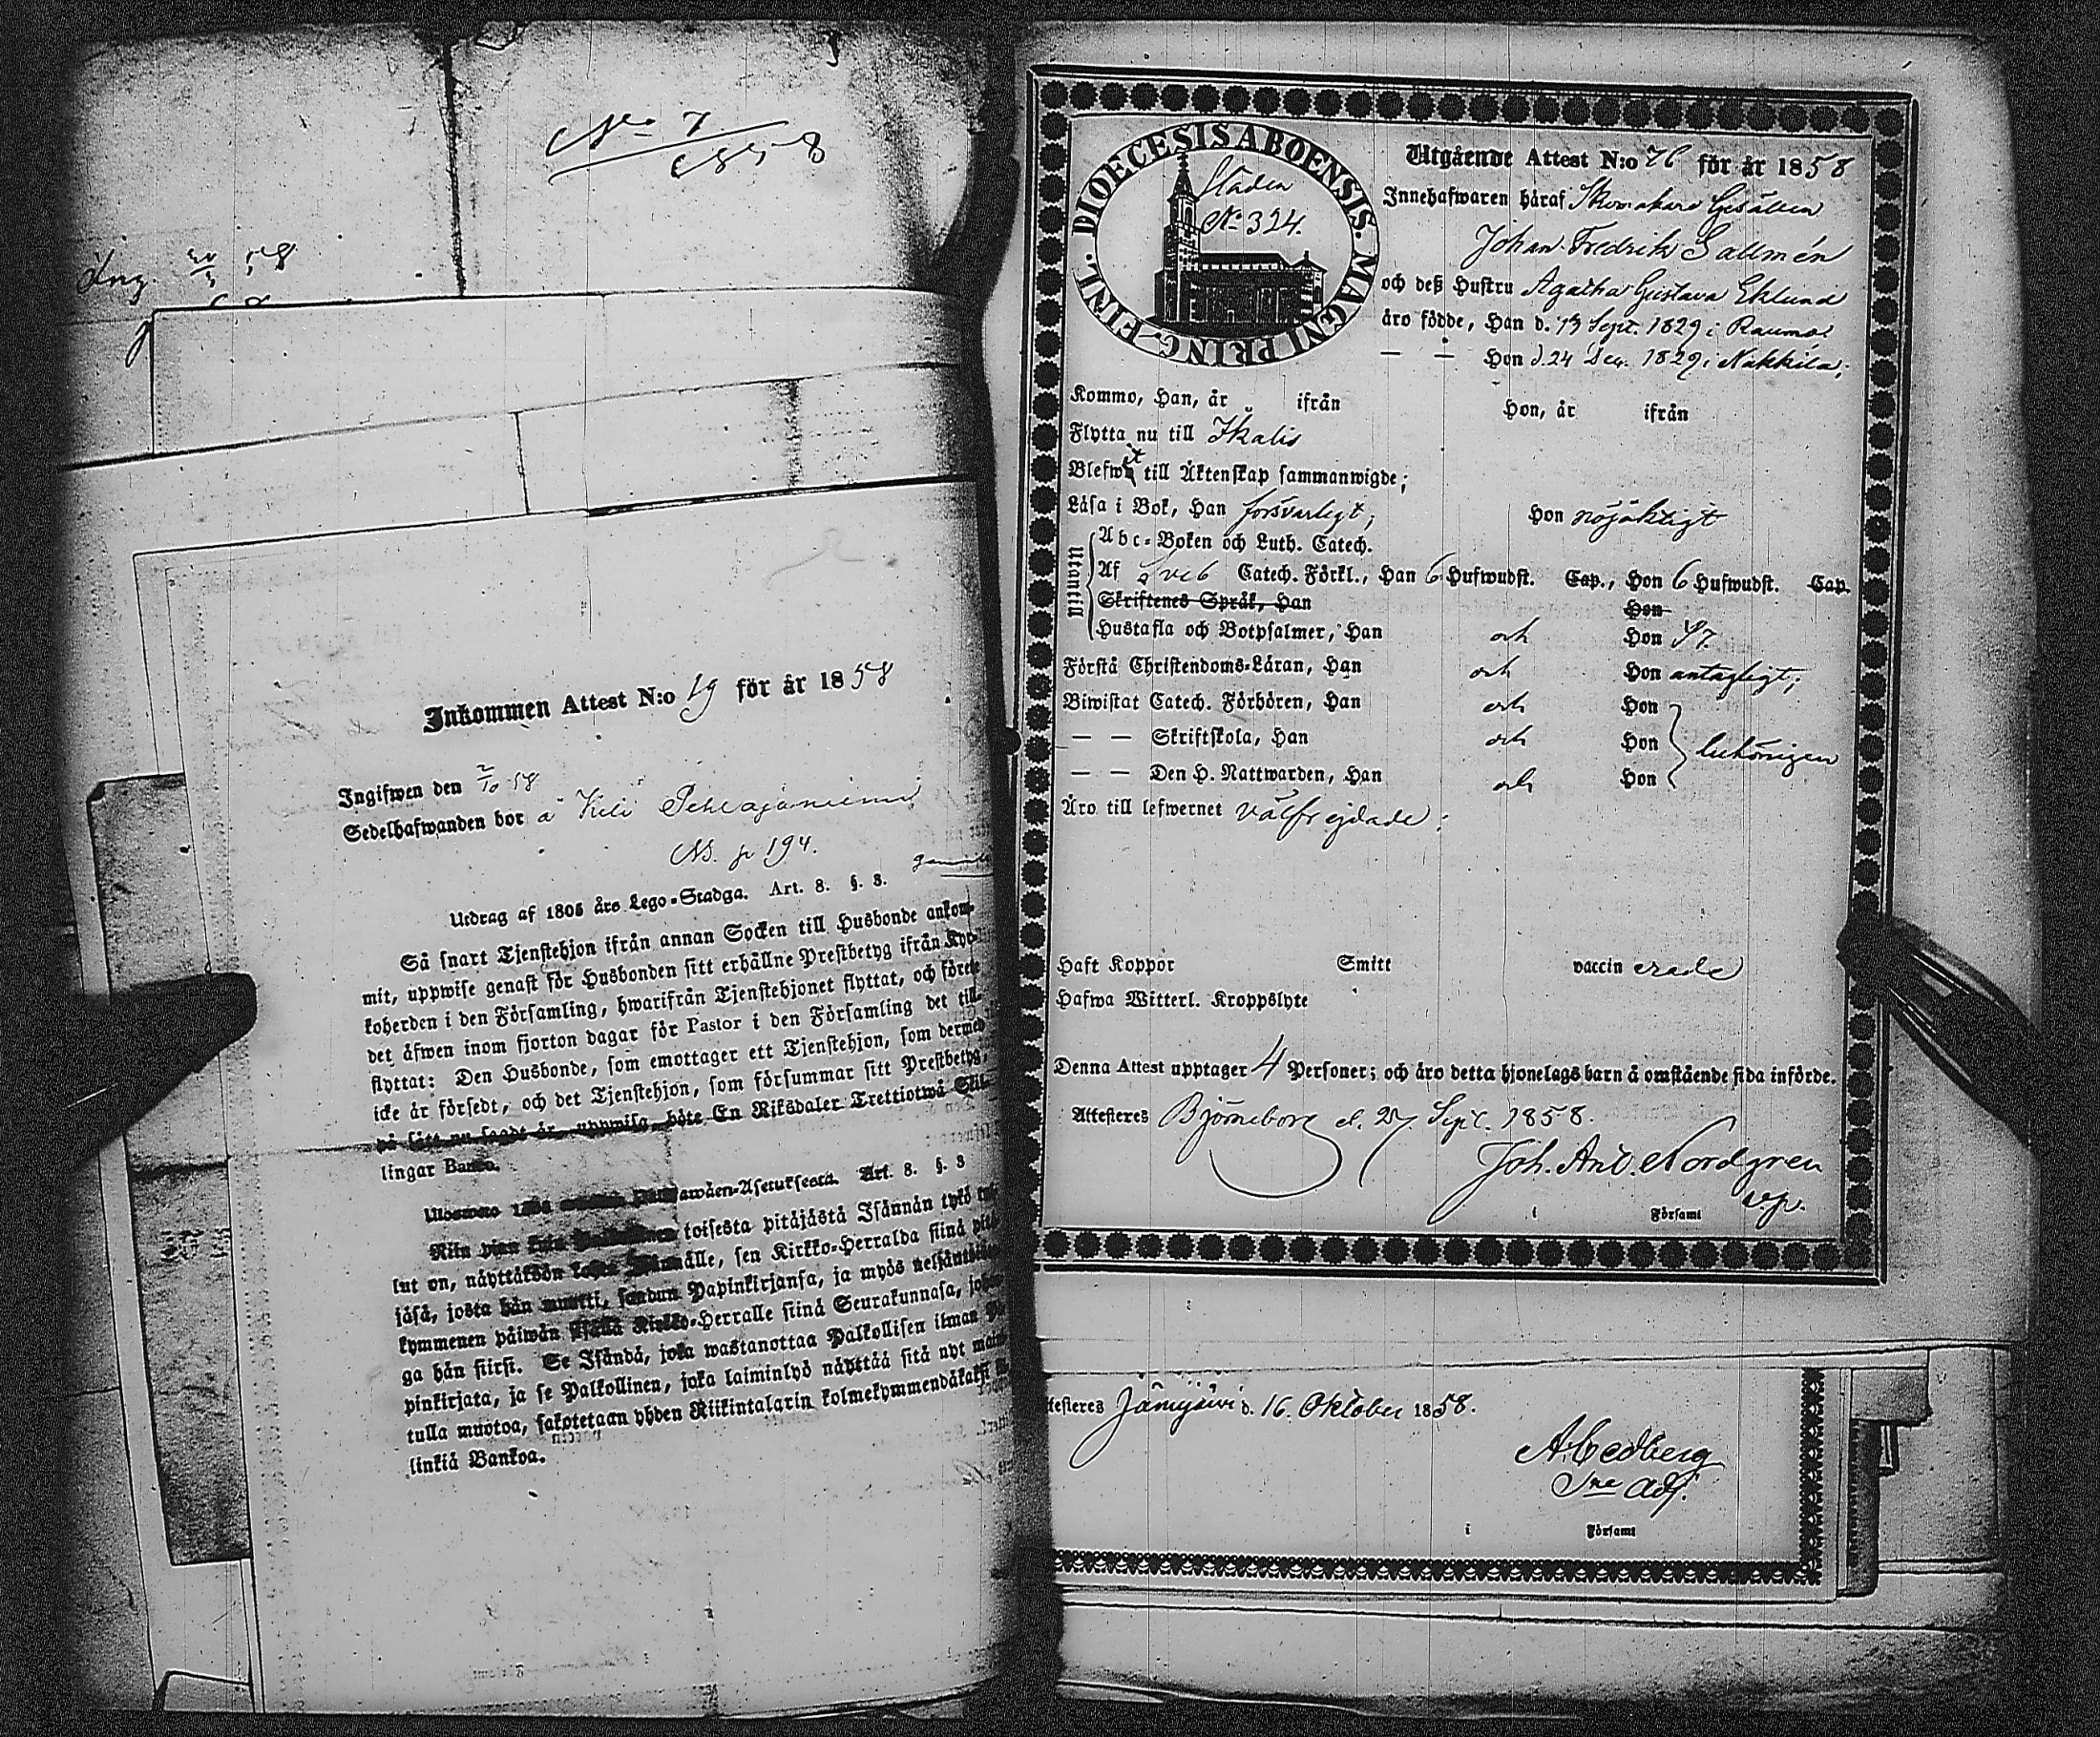 No 7
1858
Ing. 20/3 58
Inkommen Attest N:o 19 för år 1858
Ingifwen den 2/10 58
Sedelhafwanden bor å
No. p 194.
Utdrag af 1805 års Lego-Stadga. Art. 8. §. 3.
Så snart Tjenstehjon ifrån annan Socken till Husbonde ankom-
mit, uppwise genast för Husbonden sitt erhållne Prestbetyg ifrån Kyr-
koherden i den Församling, hwarifrån Tjenstehjonet flyttat, och förete
det äfwen inom fjorton dagar för Pastor i den Församling det till-
flyttat: Den Husbonde, som emottager ett Tjenstehjon, som dermed
icke är försedt, och det Tjenstehjon, som försummar sitt Prestbetyg,
på sätt nu sagdt är, uppwisa, böte En Riksdaler Trettiotwå Skil-
lingar Banco.
Art. 8. §. 3
Niin pian kuin toisesta pitäjästä Isännän tykö
lut on, näyttäköön älle, sen Kirkko-Herralda siinä
jäsä, josta hän muutti, saadun Papinkirjansa, ja myös
kymmenen päiwän Kirkko-Herralle siinä Seurakunnasa,
ga hän siirsi. Se Isändä, joka wastanottaa Palkollisen ilman
pinkirjata, ja se Palkollinen, joka laiminlyö näyttää sitä nyt
tulla muotoa, sakotetaan yhden Riikintalarin kolmekymmendäkaksi
linkiä Bankoa.
DIOECESIS ABOENSIS. MAGNI PRINC. FINL.
Staden
No 324.
Utgående Attest N:o 76 för år 1858
Innehafwaren häraf Skomakare Gesällen
Johan Fredrik Sallmén
och deß Hustru Agatha Gustava Eklund
äro födde, Han d. 13 Sept. 1829 i Raumo.
— — Hon d. 24 Dec. 1829 i Nakkila;
Kommo, Han, år ifrån Hon, år ifrån
Flytta nu till Ikalis
Blefwit till Äktenskap sammanwigde;
Läsa i Bok, Han försvarligt; Hon nöjaktigt
Utantill
Abc-Boken och Luth. Catech.
Af Sveb Catech. Förkl., Han 6 Hufwudst. Cap., Hon 6 Hufwudst. Cap.
Skriftenes Språk, Han Hon
Hustafla och Botpsalmer, Han och Hon
Förstå Christendoms-Läran, Han och Hon antagligt;
Biwistat Catech. Förhören, Han och Hon
— — Skriftskola, Han och Hon behörigen
— — Den H. Nattwarden, Han och Hon
Äro till lefwernet välfrejdade;
Haft Koppor Smitt vaccin erade
Hafwa Witterl. Kroppslyte
Denna Attest upptager 4 Personer; och äro detta hjonelags barn å omstående sida införde.
Attesteres Björneborg d. 27 Sept. 1858.
Joh. Arv. Nordgren
v.p.
i Församl
testeres Jämijärvi d. 16. Oktober 1858.
A. Cedberg
Sne adj.
i Församl